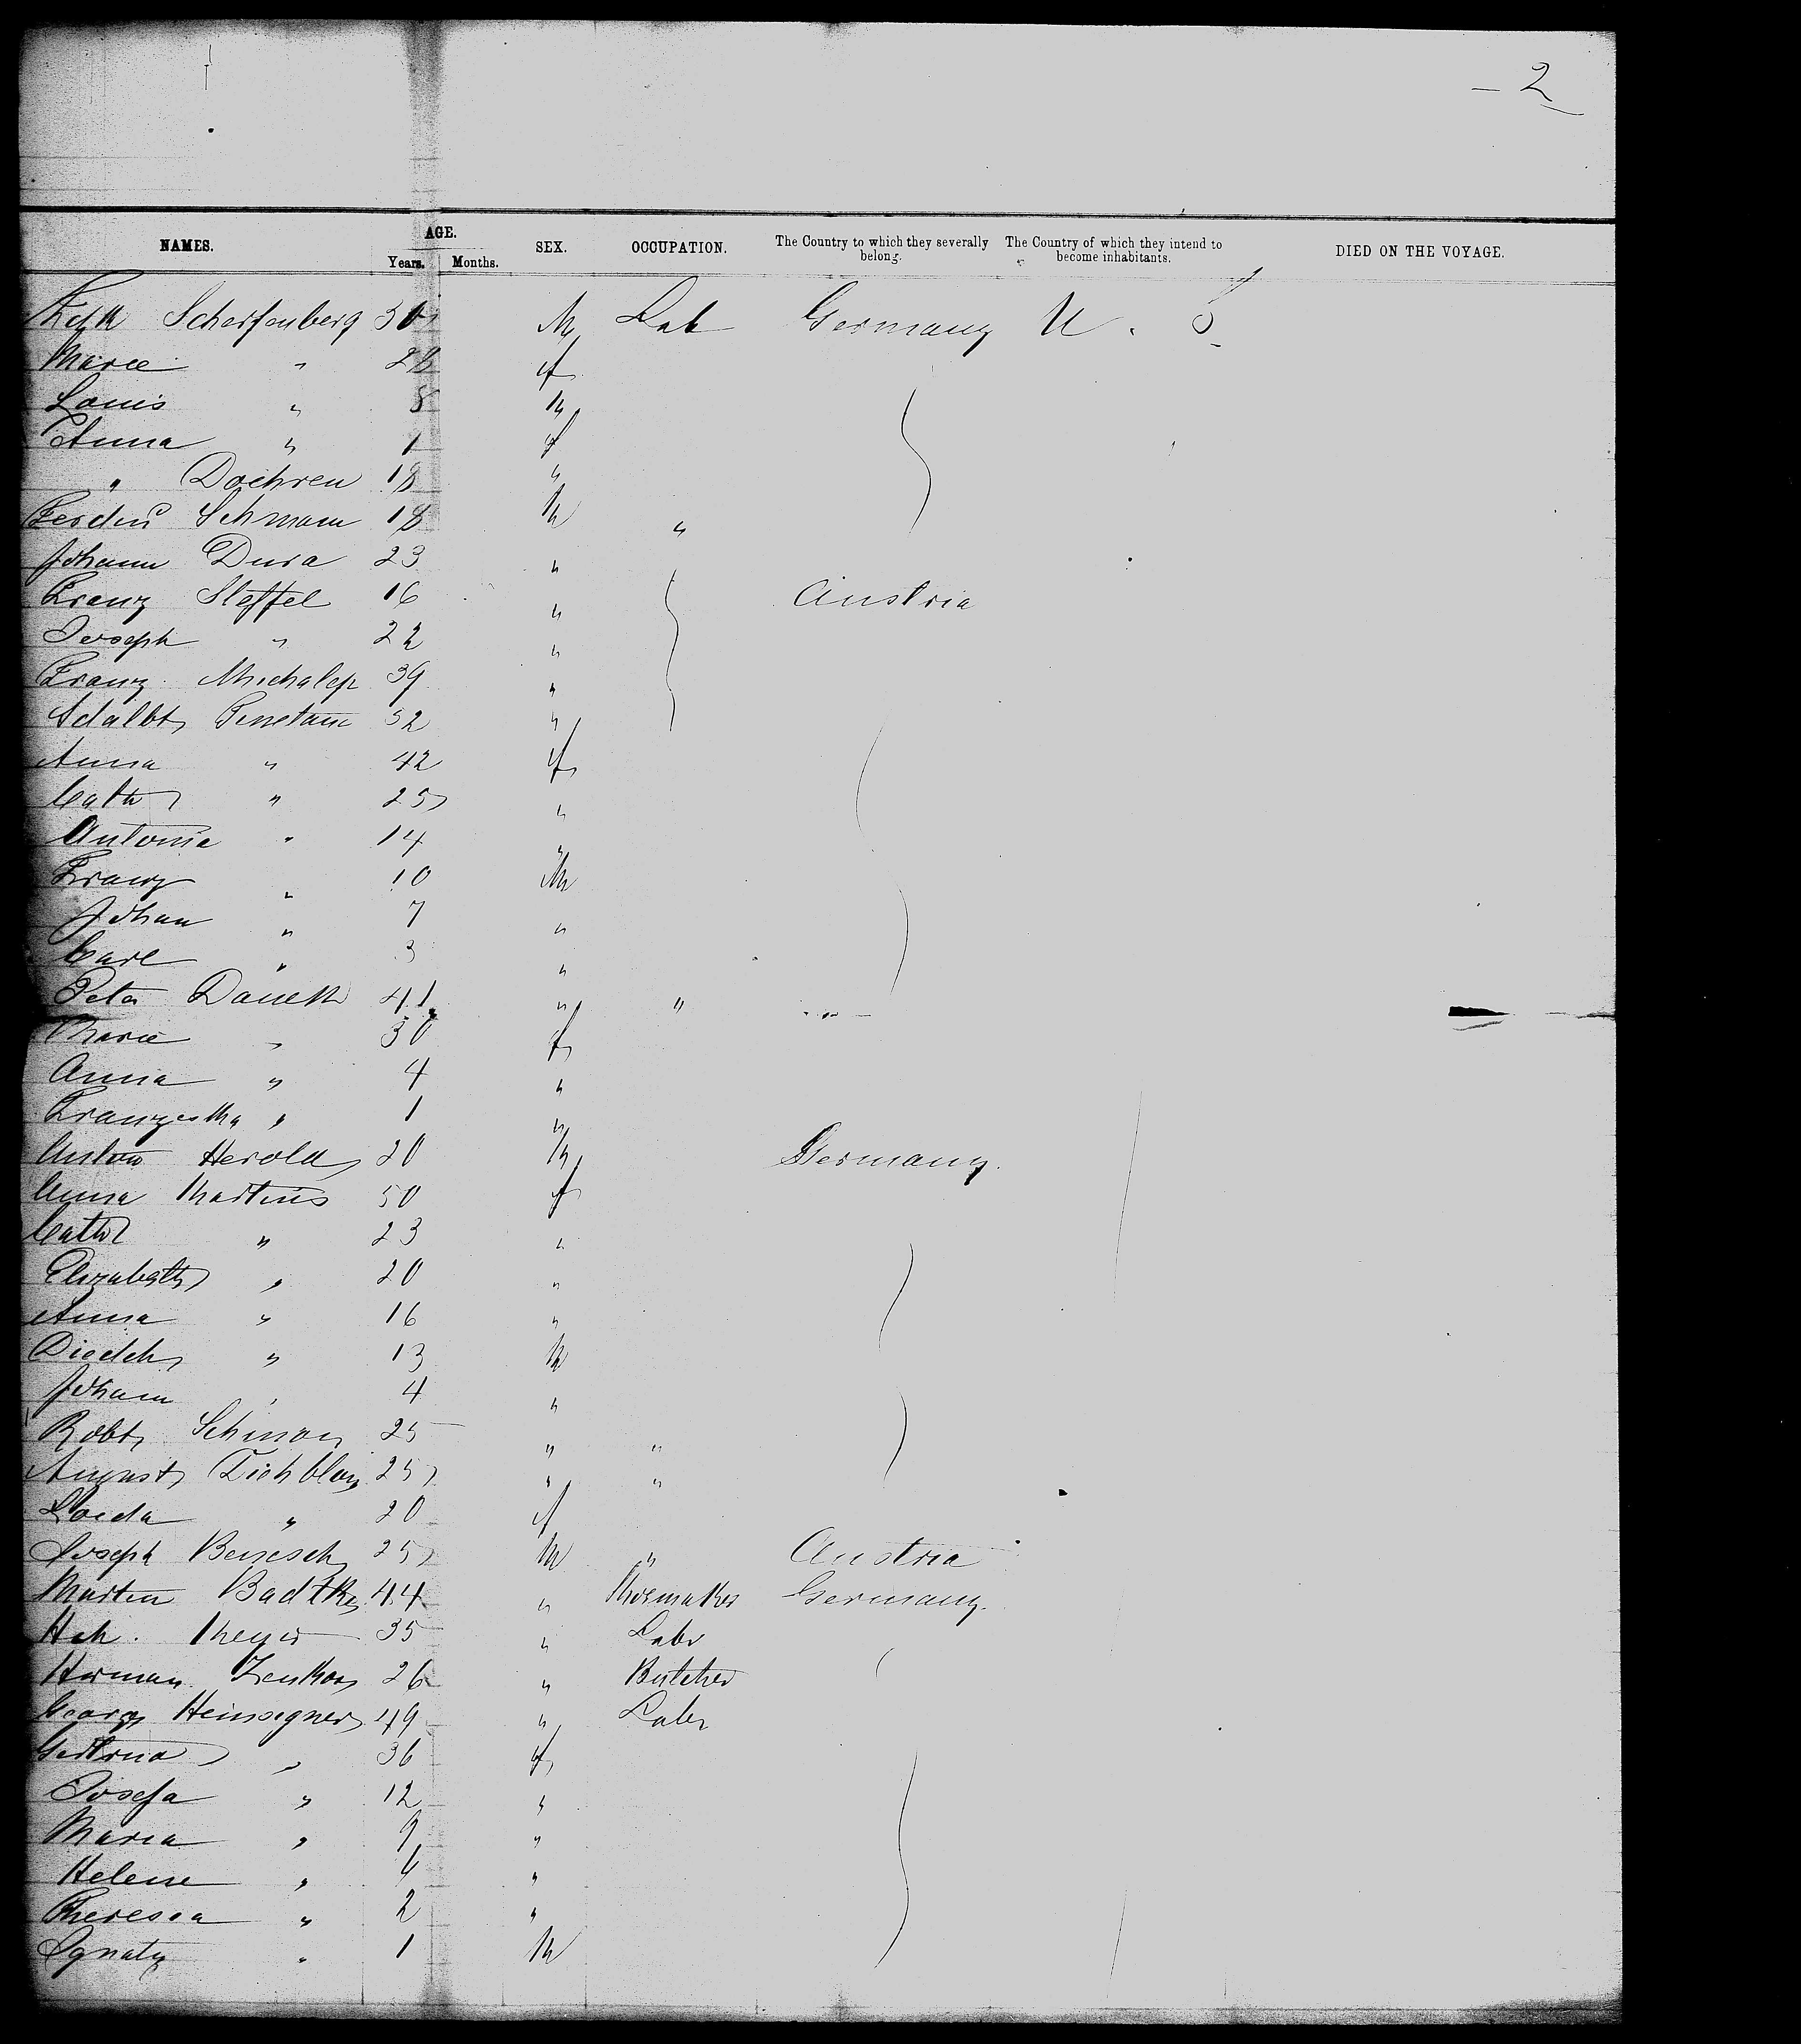 - 2
NAMES. AGE. SEX. OCCUPATION. The Country to which they severally belong. The Country of which they intend to become inhabitants. DIED ON THE VOYAGE.
Years. Months.
Scherfenberg 30 M Lab Germany U. S
Marie " 28 f
Louis " 8 M
Anna " 1 f
" Doehren 18 "
Ferdin Schmann 18 M "
Johann Dura 23 "
Franz Steffel 16 " Austria
Joseph " 22 "
Franz Michalep 39 "
Adalbt 52 "
Anna " 42 f
Cath " 25 "
Antonia " 14 "
Franz " 10 M
Johan " 7 "
Carl " 3 "
Peter Danek 41 " "
Marie " 30 f
Anna " 4 "
Franzeska " 1 "
Anton Herold 20 M Germany.
Anna Martens 50 f
Cath " 23 "
Elizabeth " 20 "
Anna " 16 "
Diedch " 13 M
Johann " 4 "
Robt 25 " "
August 25 " "
" 20 f
Joseph Benesch 25 M " Austria
Martin Badtke 44 " Shoemaker Germany.
Hch. Meyer 35 " Labr
Herman 26 " Butcher
Georg Heinsegner 49 " Labr
Gertrud " 36 f
Josefa " 12 "
Maria " 9 "
Helene " 4 "
Theresia " 2 "
Ignatz " 1 M